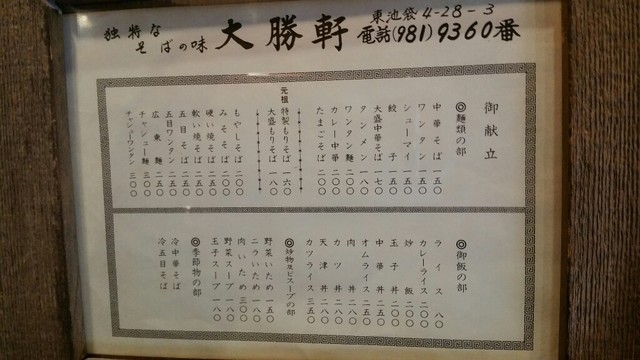 独特な
そばの味
大勝軒
東池袋4-28-3
電話(981)9360番
御献立
◎麺類の部
中華そば 一五〇
ワンタン 一五〇
シューマイ 一五〇
餃子 一五〇
大盛中華そば 一七〇
タンメン 一八〇
ワンタン麺 二〇〇
カレー中華 二〇〇
たまごそば 二〇〇
元祖
特製もりそば 一六〇
大盛もりそば 一八〇
もやしそば 二〇〇
みそそば 二〇〇
硬い焼そば 二五〇
軟い焼そば 二五〇
五目そば 二五〇
五目ワンタン 二五〇
広東麺 二五〇
チャシュー麺 三〇〇
チャシューワンタン 三〇〇
◎御飯の部
ライス 八〇
カレーライス 二〇〇
炒飯 二〇〇
玉子丼 二〇〇
中華丼 二五〇
オムライス 二五〇
肉丼 二八〇
カツ丼 二八〇
天津丼 二八〇
カツライス 三五〇
◎炒物及ビスープの部
野菜いため 一五〇
ニラいため 一八〇
肉いため 三〇〇
野菜スープ 一八〇
玉子スープ 一八〇
◎季節物の部
冷中華そば
冷五目そば